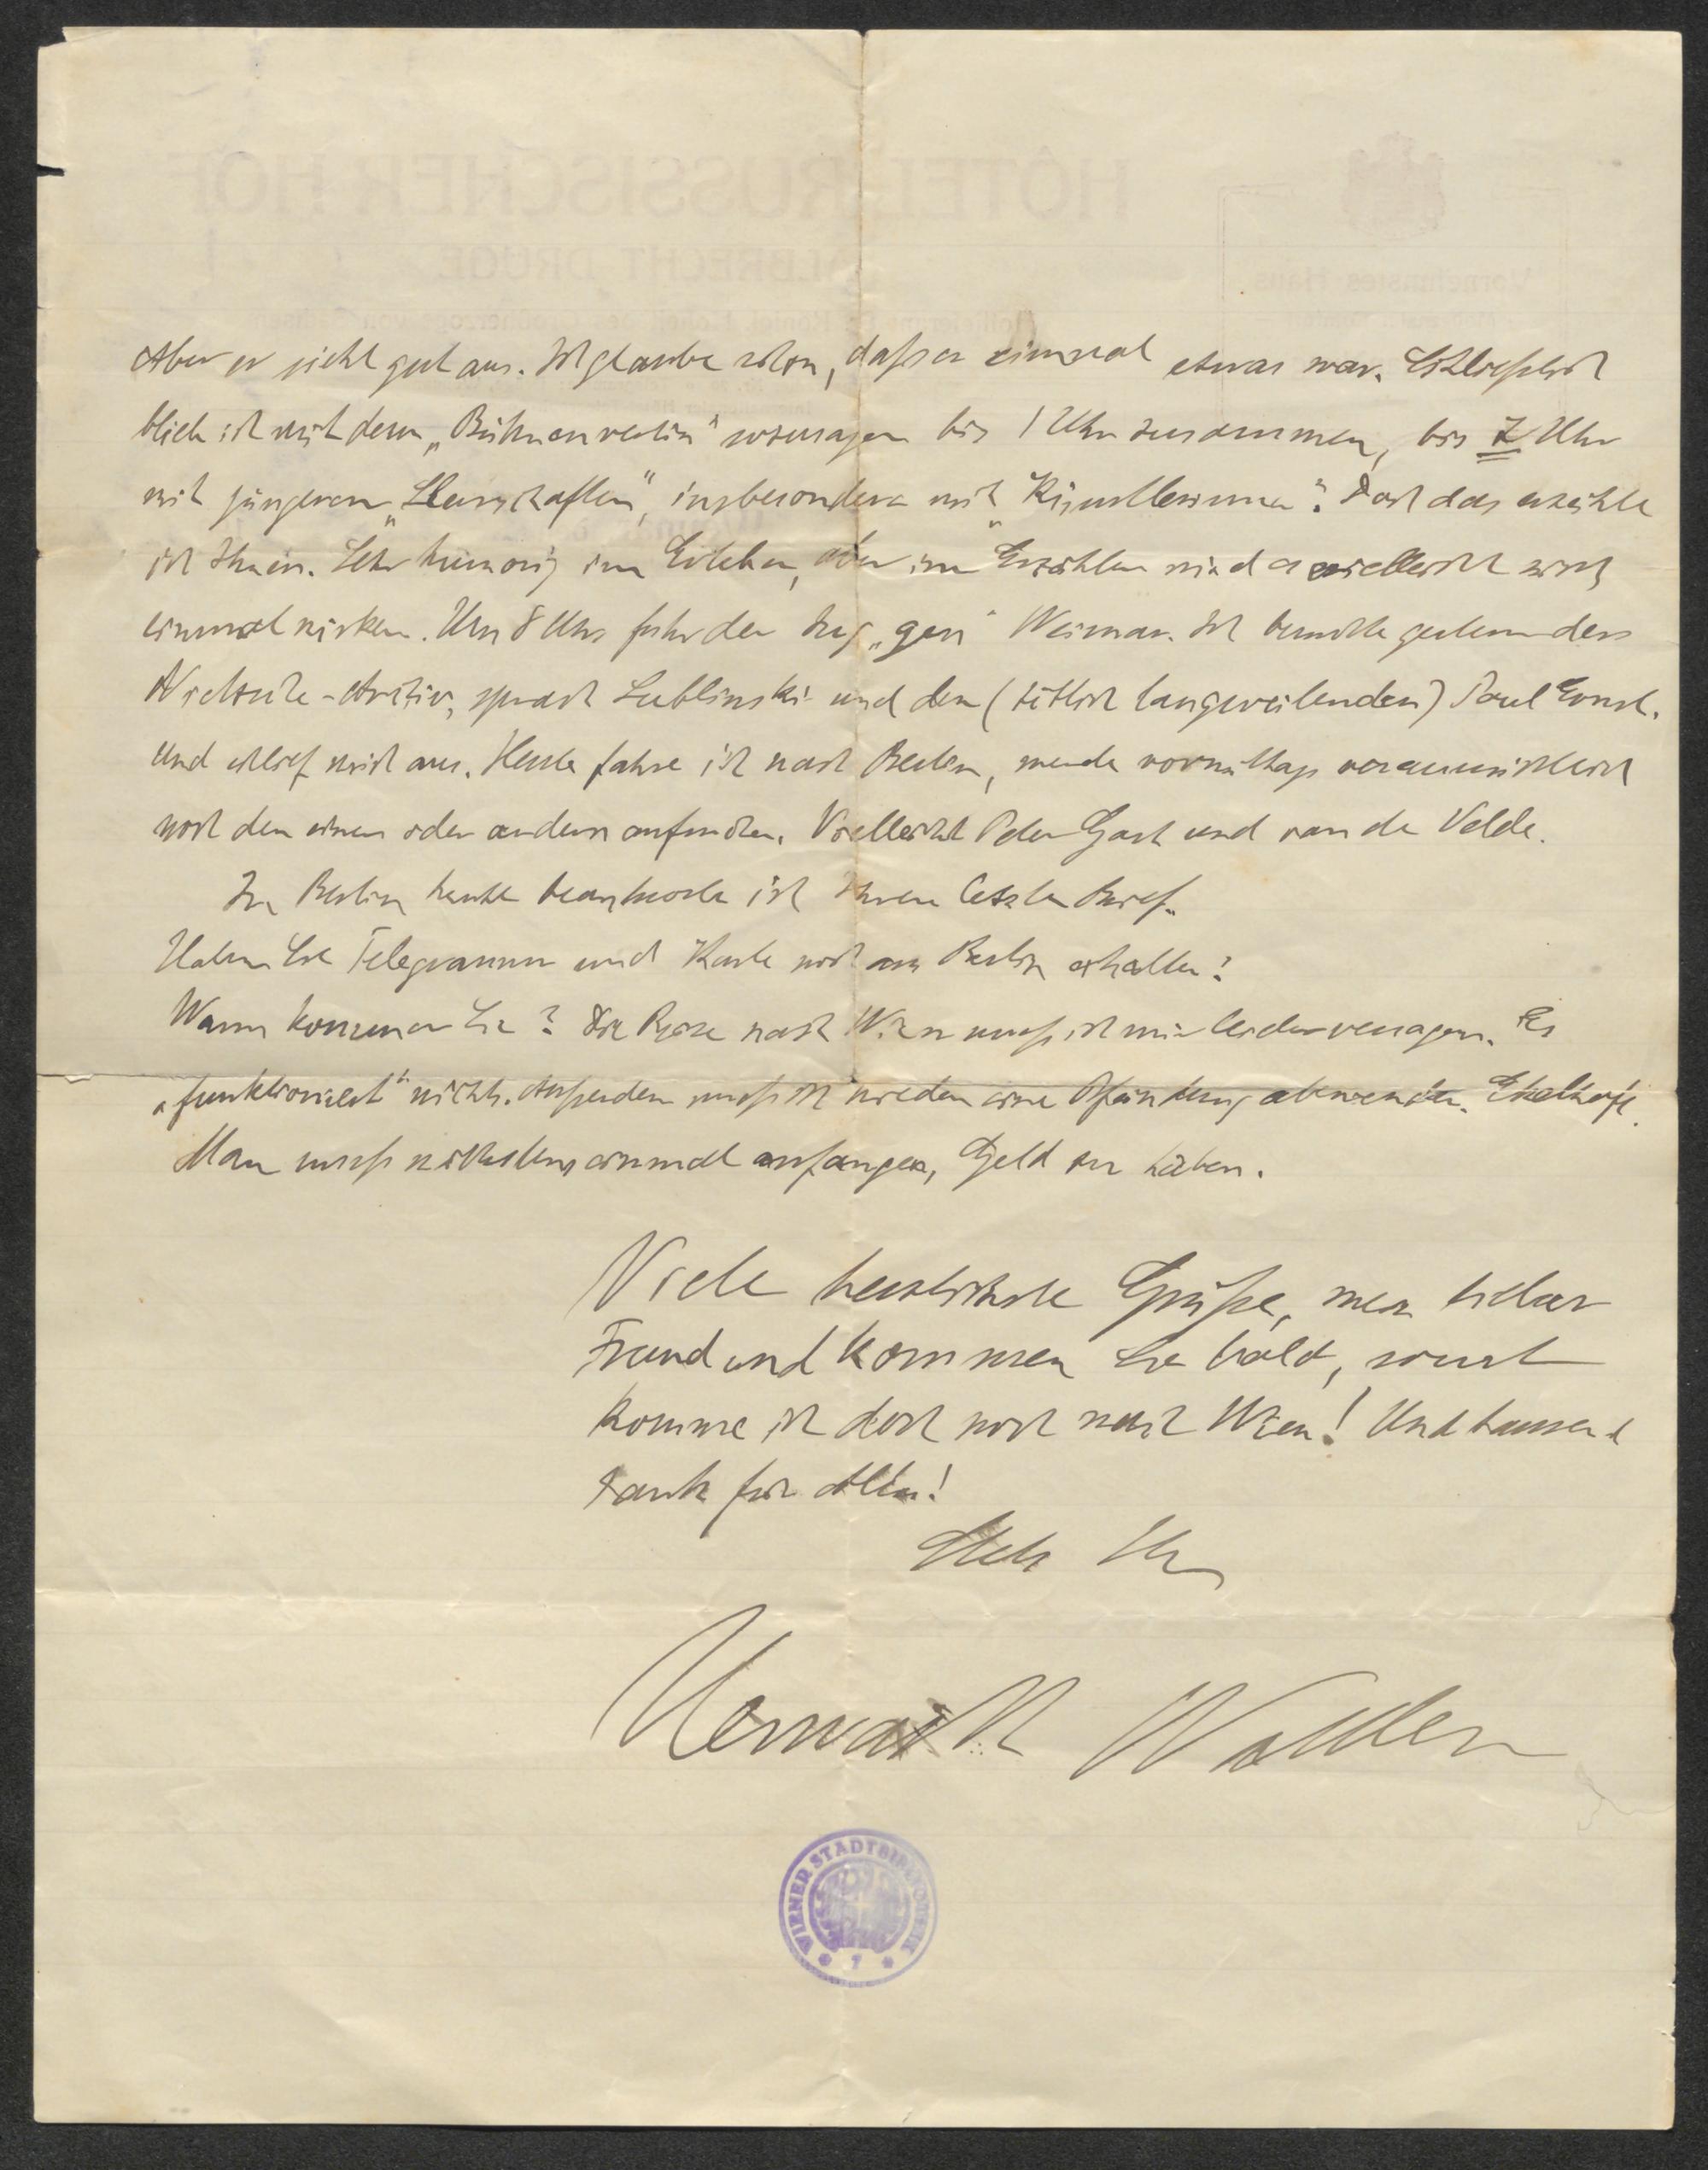 Aber er sieht gut aus. Ich glaube schon, daß er einmal etwas war. Schließlich
blieb ich mit dem „Bühnenverein“ sozusagen bis 1 Uhr zusammen, bis 7 Uhr
mit jüngeren „Herrschaften“, insbesondere mit „Künstlerinnen“. Doch das erzähle
ich Ihnen. Sehr humorig im Erleben, aber im Erzählen wird es vielleicht erst
einmal wirken. Um 8 Uhr fuhr der Zug „gen“ Weimar. Ich besuchte gestern das
Nietzsche-Archiv, sprach Lublinski und den (tötlich langweilenden) Paul Ernst.
Und schlief mich aus. Heute fahre ich nach Berlin, werde vormittags voraussichtlich
noch den einen oder andern aufsuchen. Vielleicht Peter Gast und van de Velde.
In Berlin heute beantworte ich Ihren letzten Brief.
Haben Sie Telegramm und Karte noch aus Berlin erhalten?
Wann kommen Sie? Die Reise nach Wien muß ich mir leider versagen. Es
„funktioniert“ nicht. Außerdem muß ich wieder eine Pfändung abwenden. Ekelhaft.
Man muß nächstens einmal anfangen, Geld zu haben.
Viele herzlichste Grüße, mein lieber
Freund und kommen Sie bald, sonst
komme ich doch noch nach Wien! Und tausend
Dank für Alles!
Stets Ihr
Herwarth Walden
WIENER STADTBIBLIOTHEK
* 7 *
HÔTEL RUSSISCHER HOF
ALBRECHT DRUGE
Vornehmstes Haus